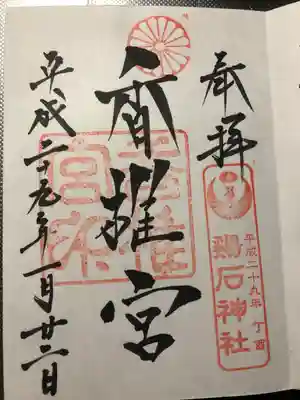 奉拝
平成二十九年 丁酉
鶏石神社
香椎宮
平成二十九年一月廿二日